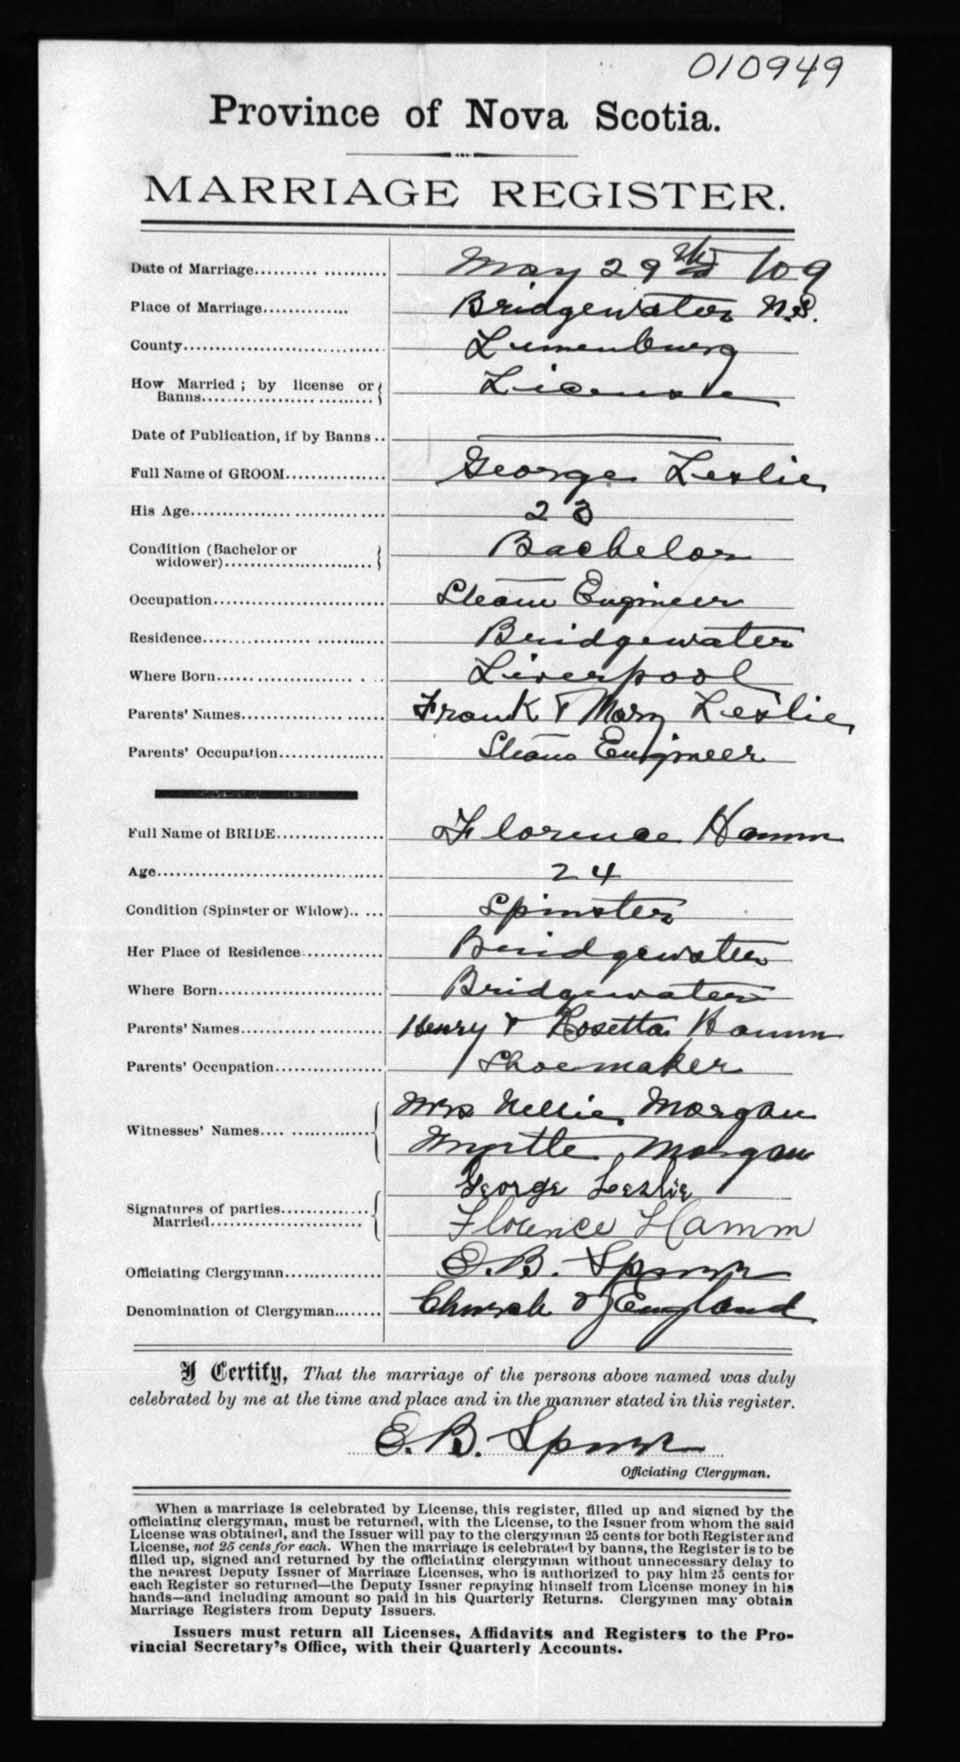 010949
Province of Nova Scotia.
MARRIAGE REGISTER.
Date of Marriage.................... May 29th /09
Place of Marriage.............. Bridgewater N.S.
County............................... Lunenburg
How Married; by license or
Banns............................ License
Date of Publication, if by Banns..
Full Name of GROOM............... George Leslie
His Age............................. 23
Condition (Bachelor or
widower)........................ Bachelor
Occupation.......................... Steam Engineer
Residence........................... Bridgewater
Where Born......................... Liverpool
Parents' Names...................... Frank & Mary Leslie
Parents' Occupation................. Steam Engineer
Full Name of BRIDE................. Florence Hamm
Age.................................... 24
Condition (Spinster or Widow)..... Spinster
Her Place of Residence............. Bridgewater
Where Born......................... Bridgewater
Parents' Names...................... Henry & Rosetta Hamm
Parents' Occupation................. Shoemaker
Witnesses' Names................... Mrs Nellie Morgan
Myrtle Morgan
Signatures of parties.............. George Leslie
Married............................ Florence Hamm
Officiating Clergyman............... E. B. Spurr
Denomination of Clergyman........ Church of England
I Certify, That the marriage of the persons above named was duly
celebrated by me at the time and place and in the manner stated in this register.
E. B. Spurr
Officiating Clergyman.
When a marriage is celebrated by License, this register, filled up and signed by the
officiating clergyman, must be returned, with the License, to the Issuer from whom the said
License was obtained, and the Issuer will pay to the clergyman 25 cents for both Register and
License, not 25 cents for each. When the marriage is celebrated by banns, the Register is to be
filled up, signed and returned by the officiating clergyman without unnecessary delay to
the nearest Deputy Issuer of Marriage Licenses, who is authorized to pay him 25 cents for
each Register so returned—the Deputy Issuer repaying himself from License money in his
hands—and including amount so paid in his Quarterly Returns. Clergymen may obtain
Marriage Registers from Deputy Issuers.
Issuers must return all Licenses, Affidavits and Registers to the Pro-
vincial Secretary's Office, with their Quarterly Accounts.